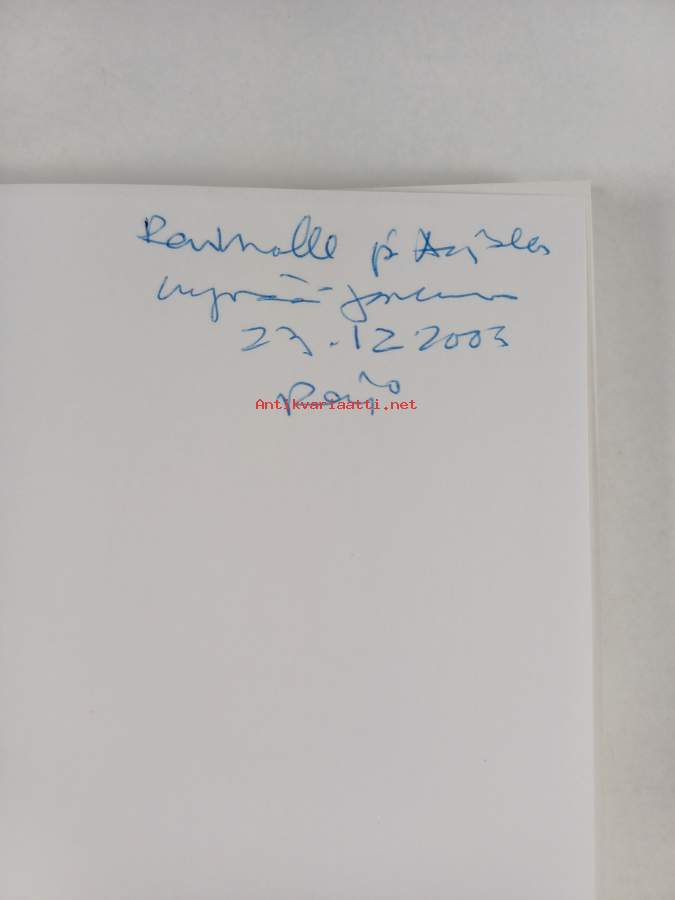 Rauhalle ja
Hyvää Joulua
23.12.2003
Raijo
Antikvariaatti.net